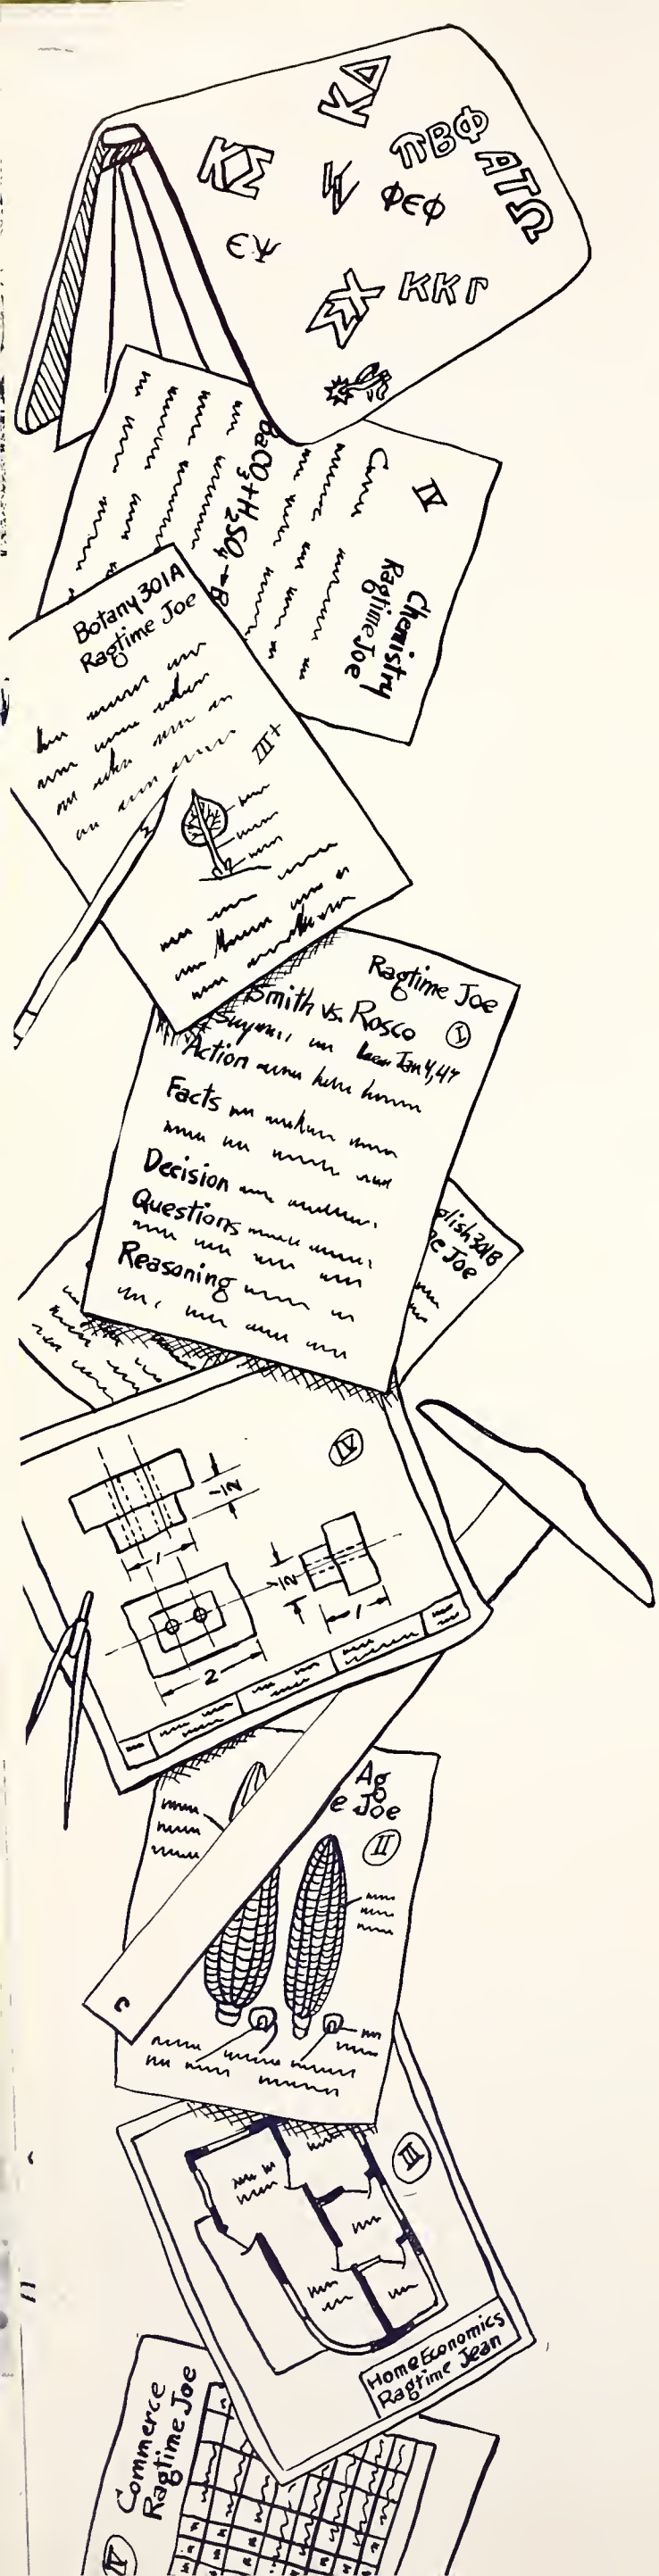 ΚΔ
ΚΣ
ΠΒΦ
ΑΤΩ
ΦΕΦ
ΕΨ
ΣΧ
ΚΚΓ
IV
Chemistry
Ragtime Joe
BaCO3+H2SO4→B
Botany 301A
Ragtime Joe
III+
Ragtime Joe
I
Smith vs. Rosco
Jan 4, 47
Action
Facts
Decision
Questions
Reasoning
glish 301B
e Joe
IV
1/2
1
1/2
1
2
Ag
e Joe
II
III
Home Economics
Ragtime Jean
Commerce
Ragtime Joe
IV